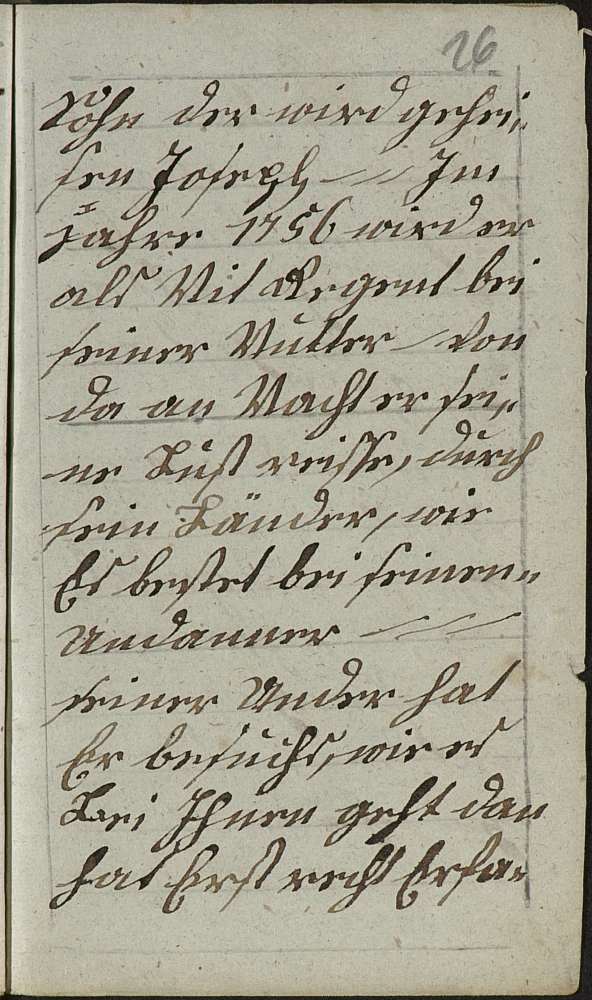 26
Sohn der wird gehei„
sen Joseph — Im
Jahre 1756 wird er
als Mit Regent bei
seiner Mutter von
da an Macht er sei„
ne Lust reisse, durch
sein Länder, wie
Es bestet bei seinen„
Undanner
seiner Under hat
Er besuchs, wie es
Bei Ihnen geht dan
hat Erst recht Erfa„